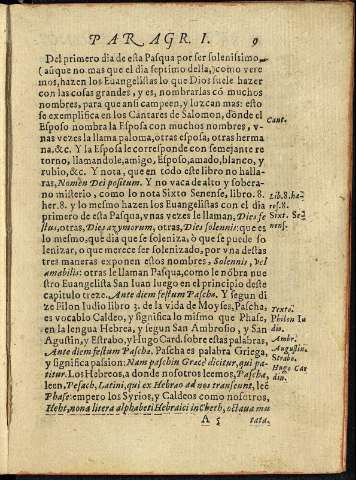 PARAGR I. 9
Del primero dia de esta Pasqua por ser solenissimo
(aũque no mas que el dia septimo della,) como vere
mos, hazen los Euangelistas lo que Dios suele hazer
con las cosas grandes, y es, nombrarlas cõ muchos
nombres, para que ansi campeen, y luzcan mas: esto
se exemplifica en los Cantares de Salomon, donde el
Cant.
Esposo nombra la Esposa con muchos nombres, v-
nas vezes la llama paloma, otras esposa, otras herma
na. &c. Y la Esposa le corresponde con semejante re
torno, llamandole, amigo, Esposo, amado, blanco, y
rubio, &c. Y nota, que en todo este libro no halla-
ras, Nomen Dei positum. Y no vaca de alto y sobera-
no misterio, como lo nota Sixto Senense, libro. 8.
her. 8. y lo mesmo hazen los Euangelistas con el dia
Lib. 8. he
res. 8.
Sixt. Se
nens.
primero de esta Pasqua, vnas vezes le llaman, Dies fe
stus, otras, Dies azymorum, otras, Dies solennis: que es
lo mesmo, que dia que se soleniza, ò que se puede so
lenizar, o que merece ser solenizado, por vna destas
tres maneras exponen estos nombres, Solennis, vel
amabilis: otras le llaman Pasqua, como le nõbra nue
stro Euangelista San Iuan luego en el principio deste
capitulo treze. Ante diem festum Pascha. Y segun di
ze Filon Iudio libro 3. de la vida de Moyses, Pascha,
es vocablo Caldeo, y significa lo mismo que Phase,
en la lengua Hebrea, y segun San Ambrosio, y San
Agustin, y Estrabo, y Hugo Card. sobre estas palabras,
Texto.
Philon Iu
dio.
Ambr.
Augustin.
Strabo.
Hugo Car
din.
Ante diem festum Pascha. Pascha es palabra Griega,
y significa passion: Nam paschin Græcè dicitur, qui pa-
titur. Los Hebreos, a donde nosotros leemos, Pascha,
leen, Pesach, Latini, qui ex Hebrao ad nos transeunt, leẽ
Phase: empero los Syrios, y Caldeos como nosotros,
Heht, nona litera alphabeti Hebraici in Cheth, octaua mu
A 5 tata.